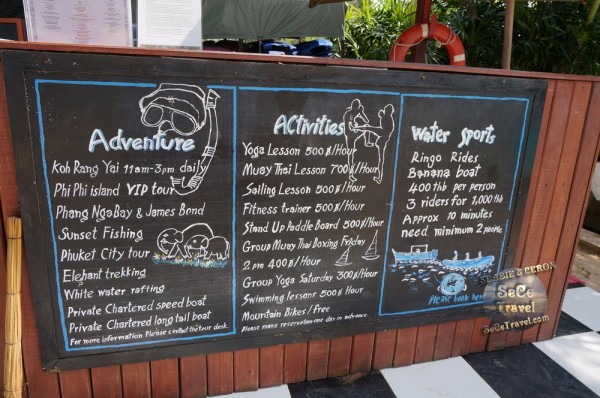 Adventure
Koh Rang Yai 11am-3pm daily
Phi Phi island VIP tour
Phang Nga Bay & James Bond
Sunset Fishing
Phuket City tour
Elephant trekking
White water rafting
Private Chartered speed boat
Private Chartered long tail boat
For more information Please contact the tour desk.
Activities
Yoga Lesson 500 ฿/Hour
Muay Thai Lesson 700 ฿/Hour
Sailing Lesson 500 ฿/Hour
Fitness trainer 500 ฿/Hour
Stand Up Paddle Board 500 ฿/Hour
Group Muay Thai Boxing Friday
2 pm 400 ฿/Hour
Group Yoga Saturday 300 ฿/Hour
Swimming lessons 500 ฿/Hour
Mountain Bikes/free
Please make reservation one day in advance.
Water Sports
Ringo Rides
Banana boat
400 thb per person
3 riders for 1,000 thb
Approx 10 minutes
need minimum 2 people
Please book here
SEBBIE & CERON
SeCe
Travel
SeCeTravel.com